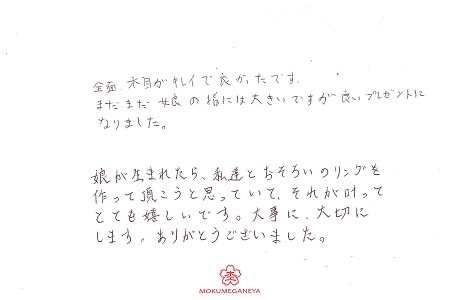 全面、木目がキレイで良かったです。
まだまだ娘の指には大きいですが良いプレゼントに
なりました。
娘が生まれたら、私達とおそろいのリングを
作って頂こうと思っていて、それが叶って
とても嬉しいです。大事に、大切に
します。ありがとうございました。
MOKUMEGANEYA